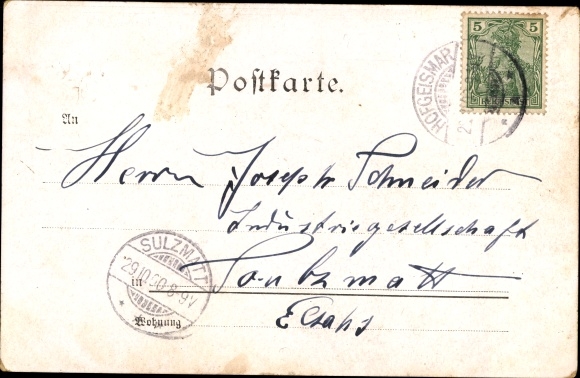 5 5
HOFGEISMAR
Postkarte.
An
Herrn Joseph Schneider
Industriegesellschaft
in Soulzmatt
Elsass
Wohnung
SULZMATT
29.10.00.8-9V